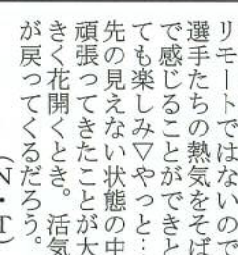 リモートではないので
選手たちの熱気をそば
で感じることができと
ても楽しみ▽やっと…
先の見えない状態の中
頑張ってきたことが大
きく花開くとき。活気
が戻ってくるだろう。
（N・T）